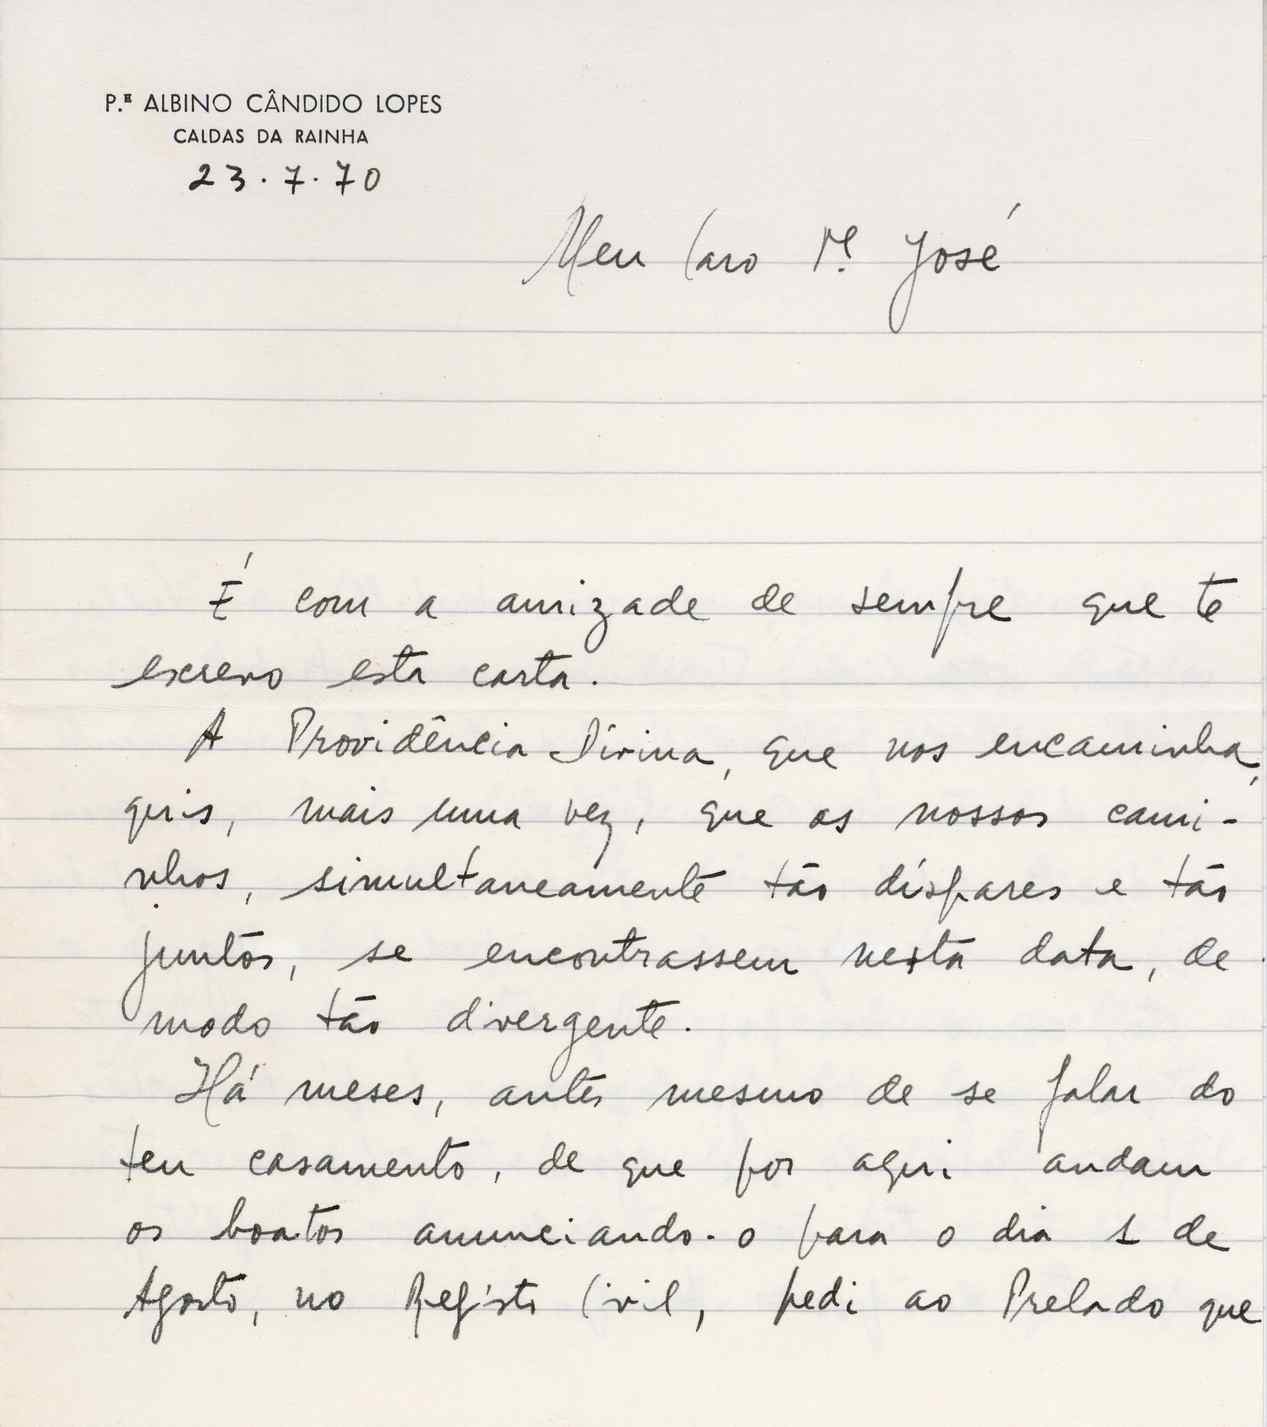 P.E ALBINO CÂNDIDO LOPES
CALDAS DA RAINHA
23.7.70
Meu Caro P.e José
É com a amizade de sempre que te
escrevo esta carta.
A Providência Divina, que nos encaminha,
quis, mais uma vez, que os nossos cami-
nhos, simultaneamente tão díspares e tão
juntos, se encontrassem nesta data, de
modo tão divergente.
Há meses, antes mesmo de se falar do
teu casamento, de que por aqui andam
os boatos anunciando-o para o dia 1 de
Agosto, no Registo Civil, pedi ao Prelado que